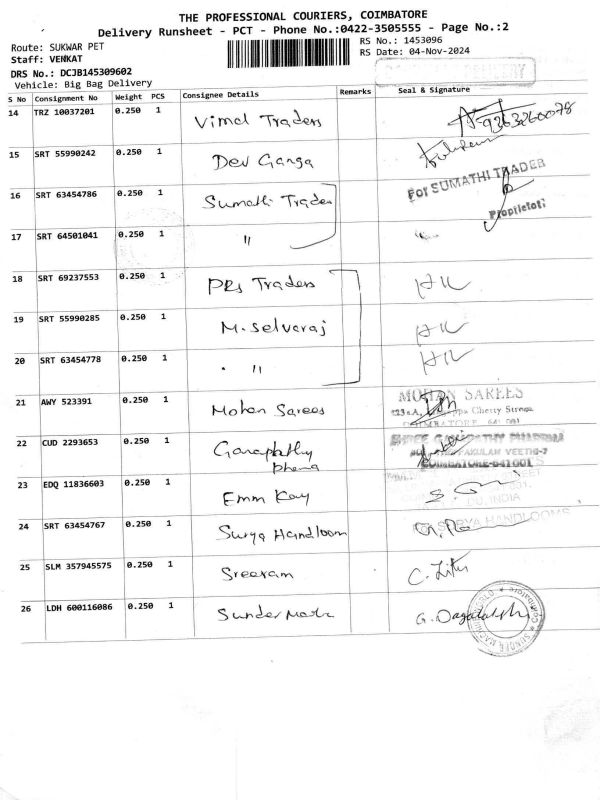 THE PROFESSIONAL COURIERS, COIMBATORE
Delivery Runsheet - PCT - Phone No.:0422-3505555 - Page No.:2
Route: SUKWAR PET
RS No.: 1453096
Staff: VENKAT
RS Date: 04-Nov-2024
DRS No.: DCJB145309602
Vehicle: Big Bag Delivery
DELIVERY
S No Consignment No Weight PCS Consignee Details Remarks Seal & Signature
14 TRZ 10037201 0.250 1 Vimal Traders 9363260078
15 SRT 55990242 0.250 1 Dev Ganga
16 SRT 63454786 0.250 1 Sumathi Trader For SUMATHI TRADER
Proprietor
17 SRT 64501041 0.250 1 "
18 SRT 69237553 0.250 1 PRs Traders
19 SRT 55990285 0.250 1 M. Selvaraj
20 SRT 63454778 0.250 1 "
21 AWY 523391 0.250 1 Mohan Sarees MOHAN SAREES
Chetty Street
COIMBATORE 641 001
22 CUD 2293653 0.250 1 Ganapathy SHREE GANAPATHY PHARMA
Pharma COIMBATORE-641001
23 EDQ 11836603 0.250 1 Emm Kay INDIA
24 SRT 63454767 0.250 1 Surya Handloom SURYA HANDLOOMS
25 SLM 357945575 0.250 1 Sreeram
26 LDH 600116086 0.250 1 Sunder Mach G.